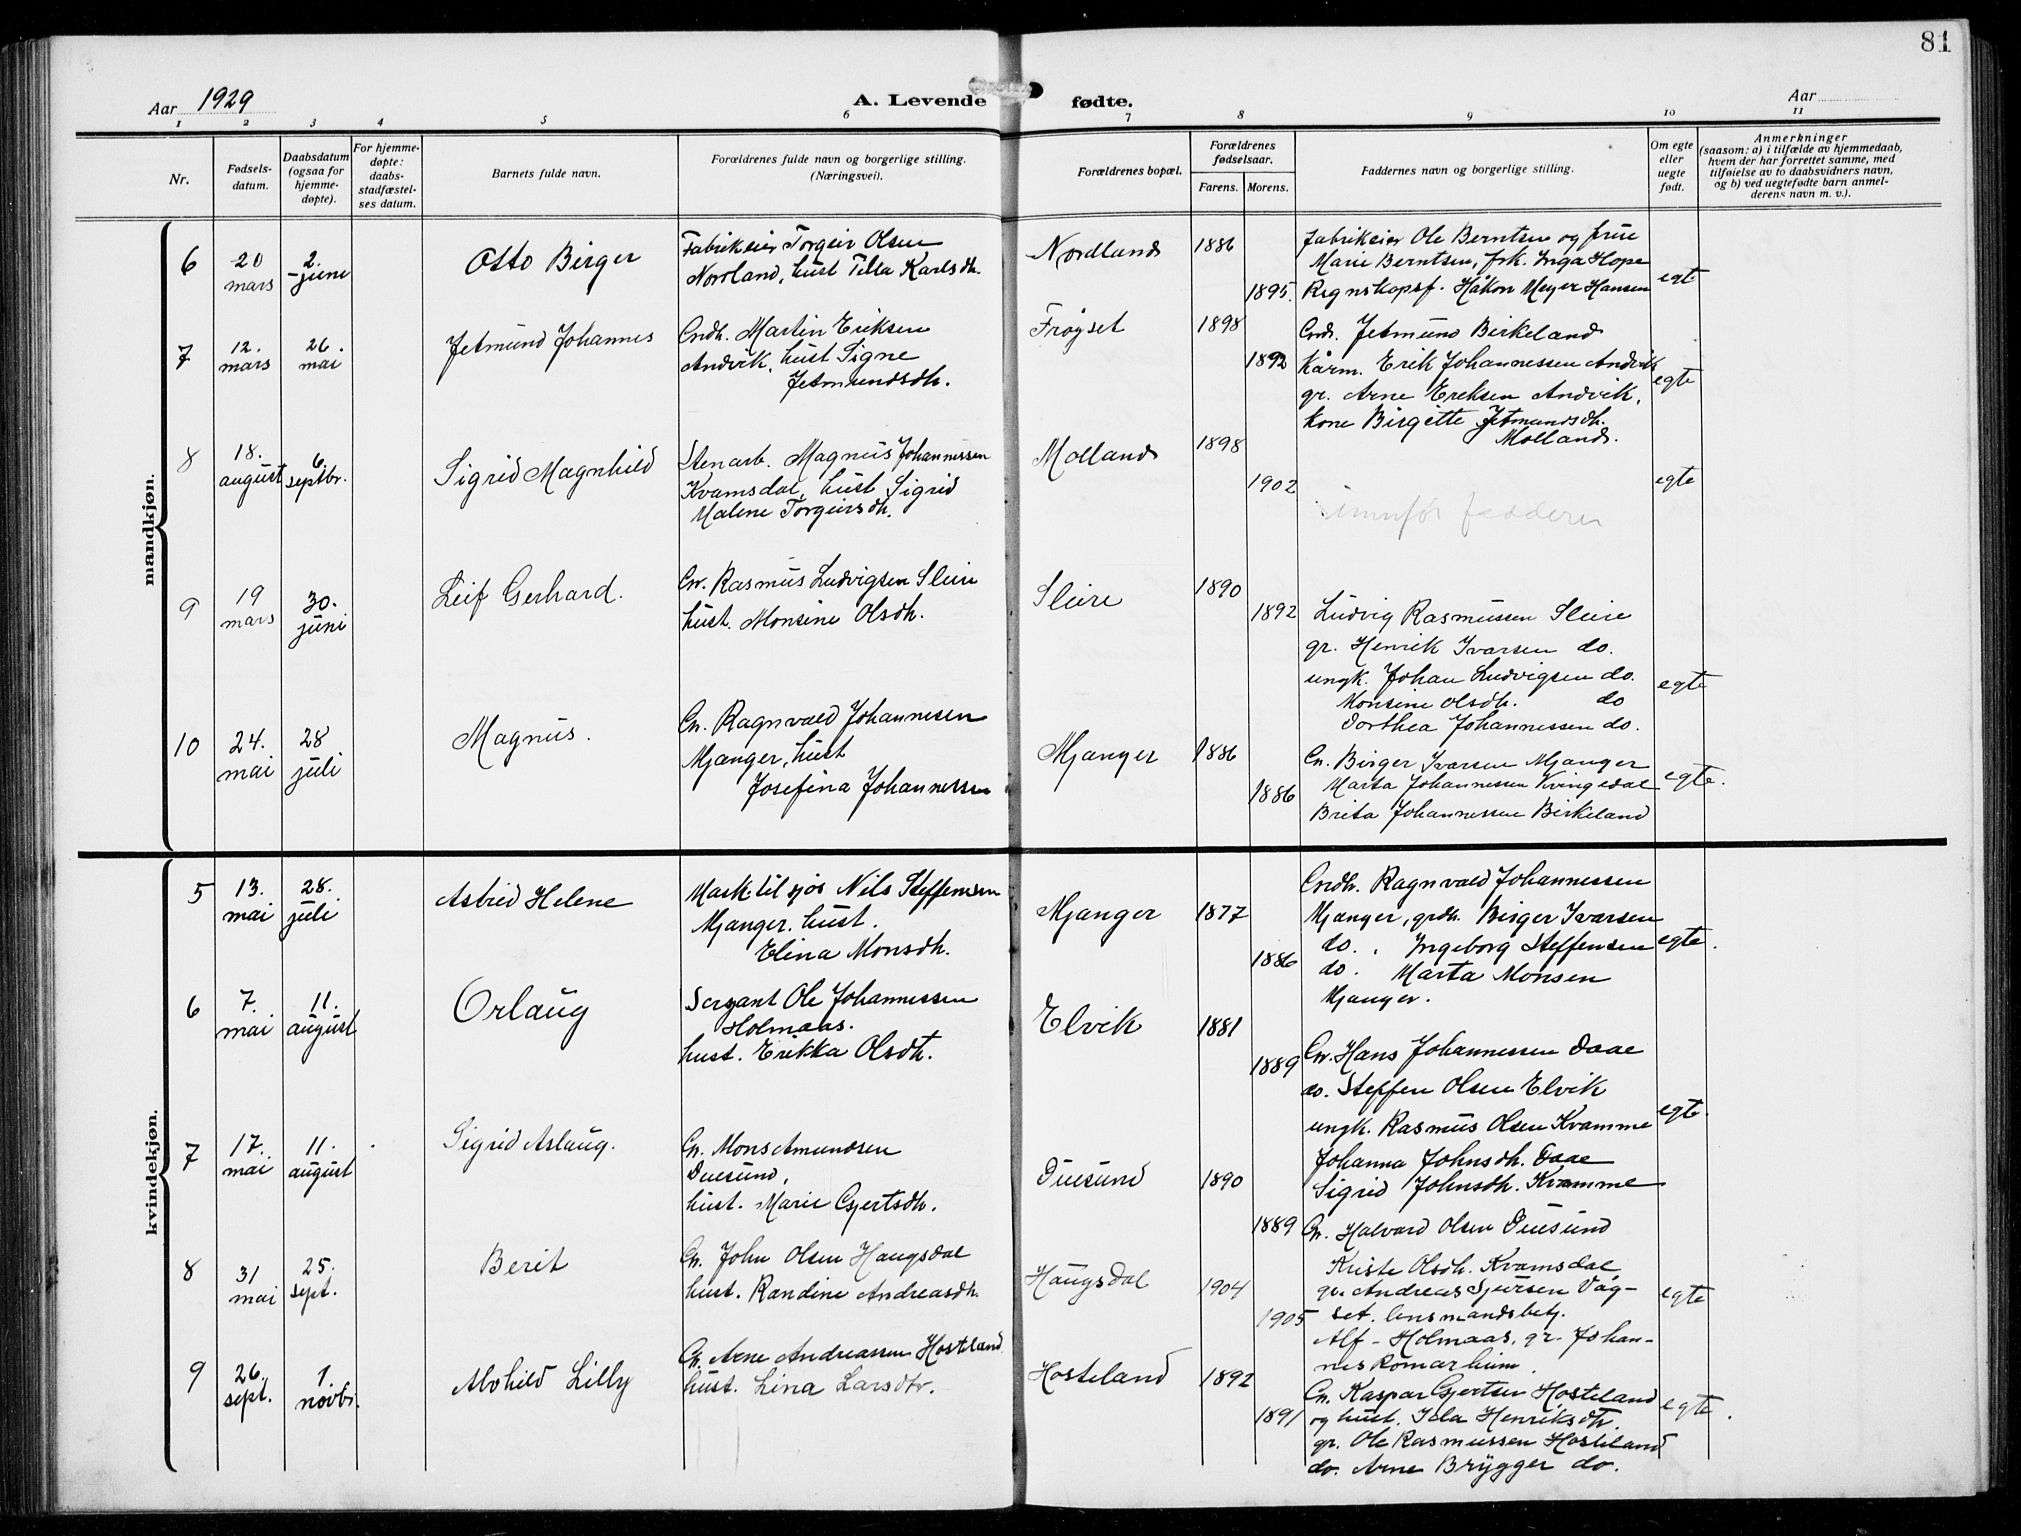 81
Aar 1929
A. Levende fødte.
Aar
1 2 3 4 5 6 7 8 9 10 11
Nr.
Fødsels-
datum.
Daabsdatum
(ogsaa for
hjemme-
døpte).
For hjemme-
døpte:
daabs-
stadfæstel-
ses datum.
Barnets fulde navn.
Forældrenes fulde navn og borgerlige stilling.
(Næringsvei).
Forældrenes bopæl.
Forældrenes
fødselsaar.
Farens. Morens.
Faddernes navn og borgerlig stilling.
Om egte
eller
uegte
født.
Anmerkninger
(saasom: a) i tilfælde av hjemmedaab,
hvem der har forrettet samme, med
tilføielse av to daabsvidners navn,
og b) ved uegtefødte barn anmel-
derens navn m. v.).
mandkjøn.
6
20
mars
2.
juni
Otto Birger
Fabrikeier Torgeir Olsen
Nordland, hust Tilla Karlsdh.
Nordland
1886
1895.
Fabrikeier Ole Berntsen og frue
Marie Berntsen, frk. Inga Hope
Regnskapsf. Håkon Meyer Hansen
egte
7
12.
mars
26.
mai
Jetmund Johannes
Gndb. Martin Eriksen
Andvik, hust Signe
Jetmundsdh.
Frøyset
1898
1892
Gnd. Jetmund Birkeland
Kårm. Erik Johannessen Andvik
gr. Arne Ereksen Andvik,
kone Birgitte Jetmundsdh.
Molland.
egte
8
18.
august
6.
septbr.
Sigrid Magnhild
Stenarb. Magnus Johannessen
Kvamsdal, hust Sigrid
Malene Torgeirsdh.
Molland
1898
1902
faddere
egte
9
19
mars
30.
juni
Leif Gerhard.
Gr. Rasmus Ludvigsen Sleire
hust. Monsine Olsdh.
Sleire
1890
1892
Ludvig Rasmussen Sleire
gr. Henrik Ivarsen do.
ungk. Johan Ludvigsen do.
Monsine Olsdh. do
Dorthea Johannessen do.
egte
10
24.
mai
28
juli
Magnus.
Gr. Ragnvald Johannesen
Mjanger, hust
Josefina Johannessen
Mjanger
1886
1886
Gr. Birger Ivarsen Mjanger
Marta Johannessen Kvingedal
Brita Johannessen Birkeland
egte.
kvindekjøn.
5
13.
mai
28.
juli
Astrid Helene
Mask. til sjøs Nils Steffensen
Mjanger. hust.
Elina Monsdh.
Mjanger
1877
1886
Gndb. Ragnvald Johannessen
Mjanger, grdb. Birger Ivarsen
do. , Ingeborg Steffensen
do. Marta Monsen
Mjanger.
egte.
6
7.
mai
11.
august
Orlaug
Sersjant Ole Johannessen
Holmaas.
hust. Erikka Olsdt.
Elvik
1881
1889
Gr. Hans Johannessen Daae
do. Steffen Olsen Elvik
ungk. Rasmus Olsen Kvamme
Johanna Johnsdh. Daae
Sigrid Johnsdh. Kvamme
egte.
7
17.
mai
11.
august
Sigrid Aslaug.
Gr. Mons Amundsen
Duesund,
hust. Marie Gjertsdh.
Duesund
1890
1889
Gr. Halvard Olsen Duesund
Kriste Olsdh. Kvamsdal
8
31
mai
25.
sept.
Berit
Gr. John Olsen Haugsdal
hust. Randine Andreasdh.
Haugsdal
1904
1905
gr. Andreas Sjursen Våg-
set. lensmandsbetj.
Alf - Holmaas, gr. Johan-
nes Romarheim.
egte
9
26.
sept.
1.
novbr.
Alvhild Lilly
Gr. Arne Andreassen Hosteland
hust. Lina Larsdtr.
Hosteland
1892
1891
Gr. Kaspar Gjertsen Hosteland
og hust. Henriksdtr.
gr. Ole Rasmussen Hosteland
do. Arne Brygger do.
egte.